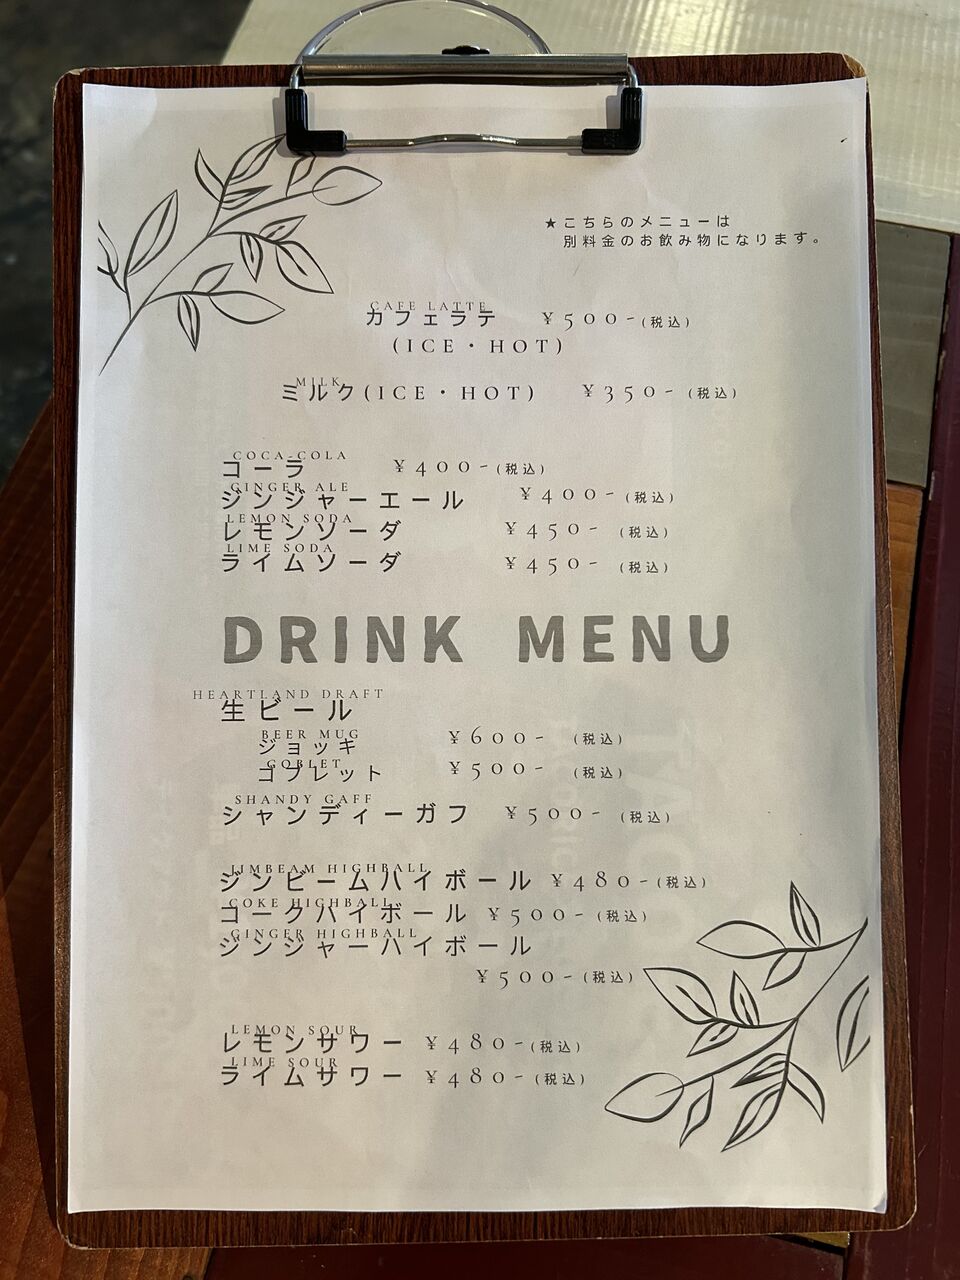 ★こちらのメニューは
別料金のお飲み物になります。
CAFE LATTE
カフェラテ ¥500-(税込)
(ICE・HOT)
MILK
ミルク(ICE・HOT) ¥350-(税込)
COCA-COLA
コーラ ¥400-(税込)
GINGER ALE
ジンジャーエール ¥400-(税込)
LEMON SODA
レモンソーダ ¥450- (税込)
LIME SODA
ライムソーダ ¥450- (税込)
DRINK MENU
HEARTLAND DRAFT
生ビール
BEER MUG
ジョッキ ¥600- (税込)
GOBLET
ゴブレット ¥500- (税込)
SHANDY GAFF
シャンディーガフ ¥500- (税込)
JIMBEAM HIGHBALL
ジンビームハイボール ¥480-(税込)
COKE HIGHBALL
コークハイボール ¥500-(税込)
GINGER HIGHBALL
ジンジャーハイボール
¥500-(税込)
LEMON SOUR
レモンサワー ¥480-(税込)
LIME SOUR
ライムサワー ¥480-(税込)